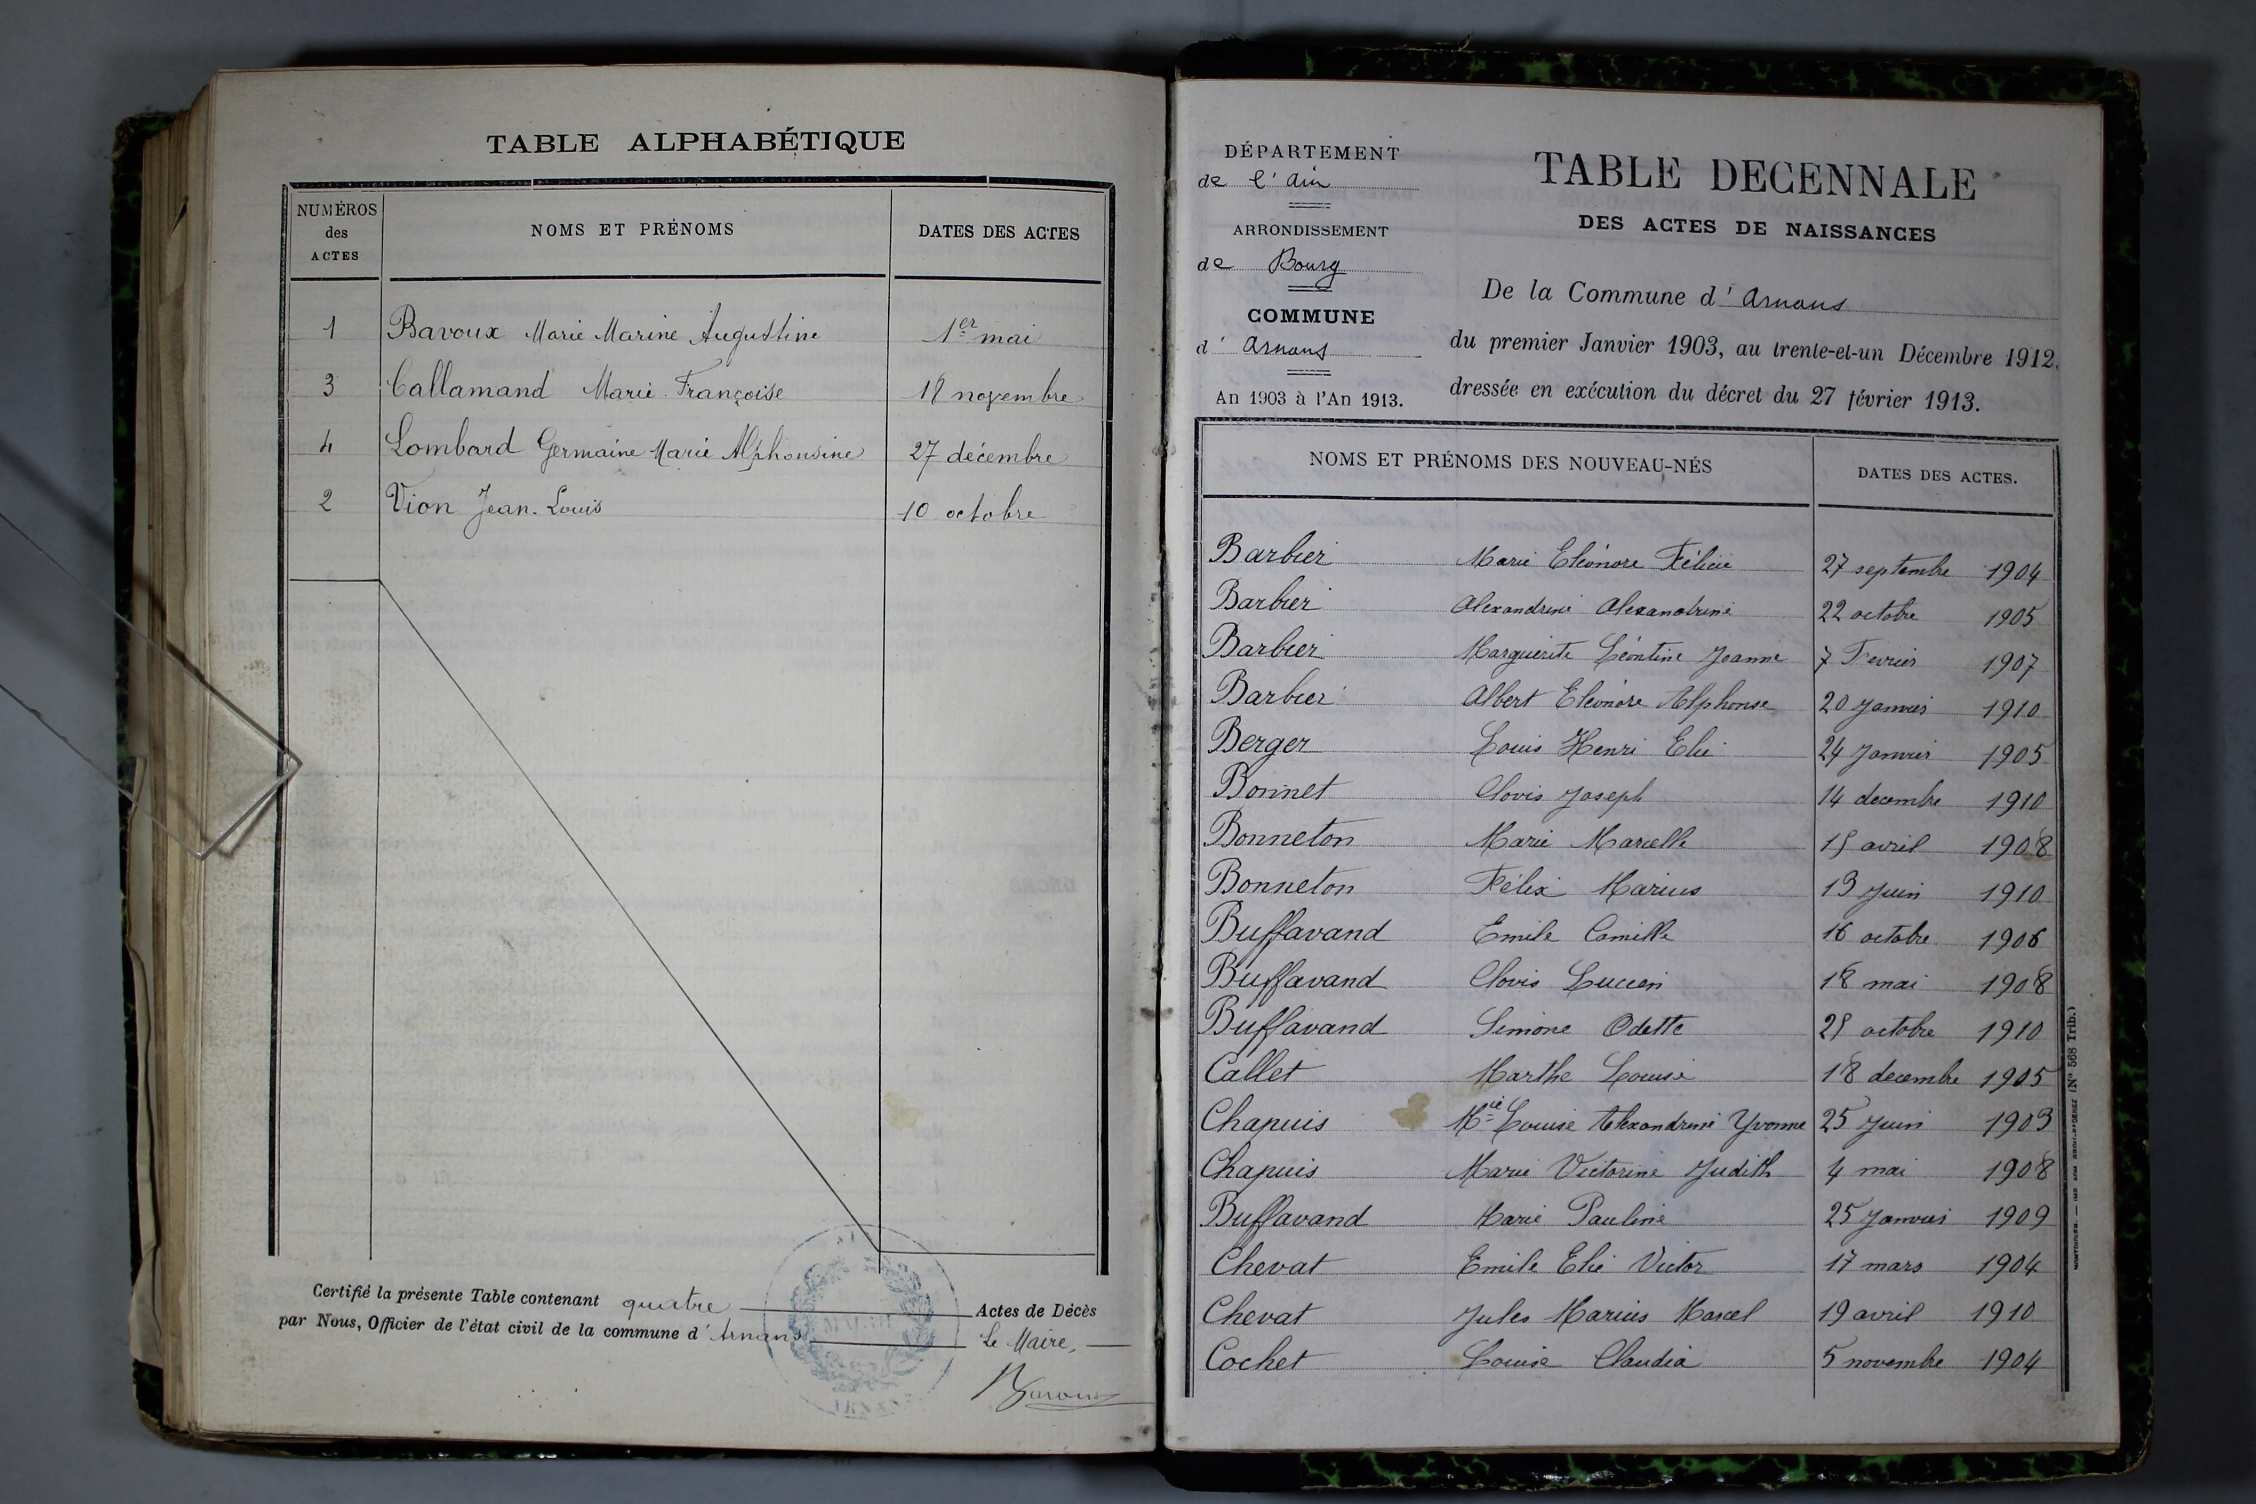 TABLE ALPHABÉTIQUE
NUMÉROS des ACTES NOMS ET PRÉNOMS DATES DES ACTES
1 Bavoux Marie Marine Augustine 1er mai
3 Callamand Marie Françoise novembre
4 Lombard Germaine Marie Alphonsine 27 décembre
2 Vion Jean-Louis 10 octobre
Certifié la présente Table contenant quatre Actes de Décès
par Nous, Officier de l'état civil de la commune d'Arnans
Le Maire,
DÉPARTEMENT
de l'ain
ARRONDISSEMENT
de Bourg
COMMUNE
d'Arnans
An 1903 à l'An 1913.
TABLE DECENNALE
DES ACTES DE NAISSANCES
De la Commune d'Arnans
du premier Janvier 1903, au trente-et-un Décembre 1912.
dressée en exécution du décret du 27 février 1913.
NOMS ET PRÉNOMS DES NOUVEAU-NÉS DATES DES ACTES.
Barbier Marie Eléonore Félicie 27 septembre 1904
Barbier Alexandrine Alexandrine 22 octobre 1905
Barbier Marguerite Léontine Jeanne 7 Fevrier 1907
Barbier Albert Eléonore Alphonse 20 Janvier 1910
Berger Louis Henri Elie 24 Janvier 1905
Bonnet Clovis Joseph 14 decembre 1910
Bonneton Marie Marcelle avril 1908
Bonneton Félix Marius 13 Juin 1910
Buffavand Emile Camille 16 octobre 1906
Buffavand Clovis Lucien 18 mai 1908
Buffavand Simone Odette octobre 1910
Callet Marthe Louise 18 decembre 1905
Chapuis Mie Louise Alexandrine Yvonne 25 Juin 1903
Chapuis Marie Victorine Judith 4 mai 1908
Buffavand Marie Pauline 25 Janvier 1909
Chevat Emile Elie Victor 17 mars 1904
Chevat Jules Marius Marcel 19 avril 1910
Cochet Louise Claudia 5 novembre 1904
(N° 568 Trib.)